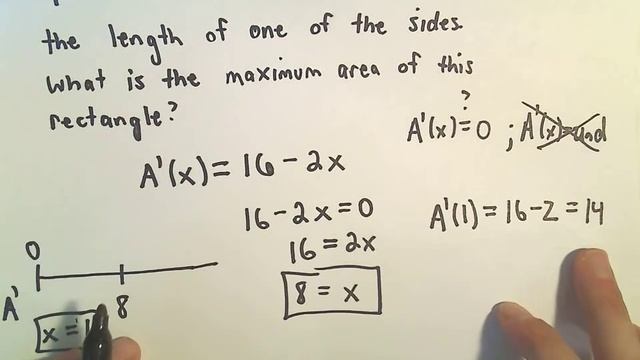 the length of one of the sides.
What is the maximum area of this
rectangle?
?
A'(x) = 0 ; A'(x) = und
A'(x) = 16 - 2x
16 - 2x = 0
A'(1) = 16 - 2 = 14
16 = 2x
8 = x
0
A'
8
x = 1